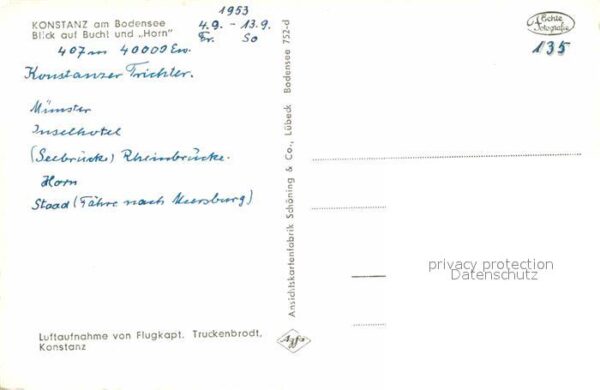 KONSTANZ am Bodensee
Blick auf Bucht und „Horn"
1953
4.9. - 13.9.
Fr. So
407m 40000 Ew.
Konstanzer Trichter.
Münster
Inselhotel
(Seebrücke) Rheinbrücke.
Horn
Staad (Fähre nach Meersburg)
Luftaufnahme von Flugkapt. Truckenbrodt,
Konstanz
Ansichtskartenfabrik Schöning & Co., Lübeck Bodensee 752-d
Agfa
Echte
Fotografie
135
privacy protection
Datenschutz